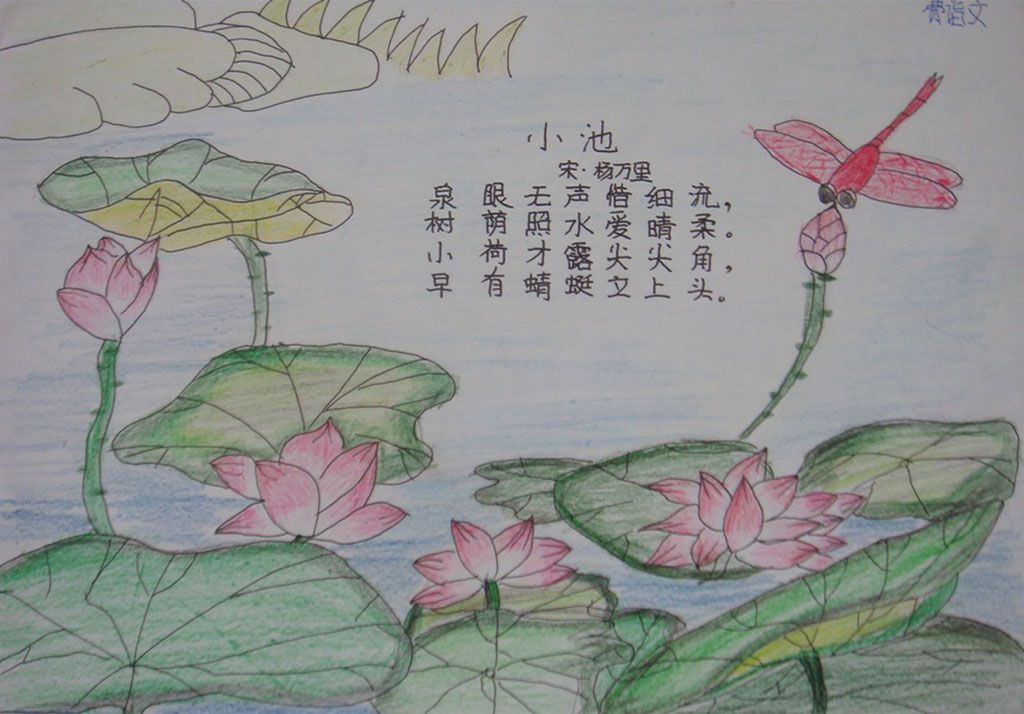 小池
宋·杨万里
泉眼无声惜细流，
树荫照水爱晴柔。
小荷才露尖尖角，
早有蜻蜓立上头。